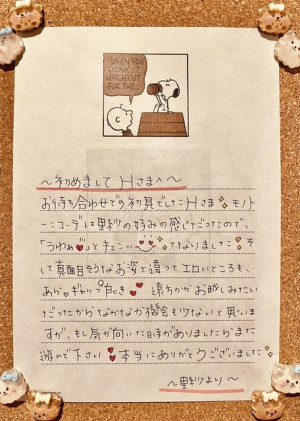 WHEN YOU
DRINK IT,
WATCH OUT
FOR THE...
～初めまして Hさまへ～
お待ち合わせでの初見でしたHさま モノト
ーンコーデは里紗の好みの感じだったので、
「うわぁ♡」とキュンッ としてなりました!そ
して真面目そうなお姿と違ってエロいところも、
あり♥ギャップ 遠ちかお越しみたい
だったからなかなか機会も少ないと思いま
すが、もし気が向いた時がありましたらまた
遊んで下さい 本当にありがとうございました
～里紗より～